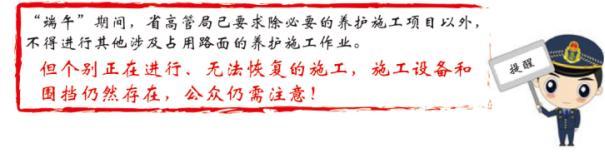 “端午”期间，省高管局已要求除必要的养护施工项目以外，
不得进行其他涉及占用路面的养护施工作业。
但个别正在进行、无法恢复的施工，施工设备和
围挡仍然存在，公众仍需注意！
提醒